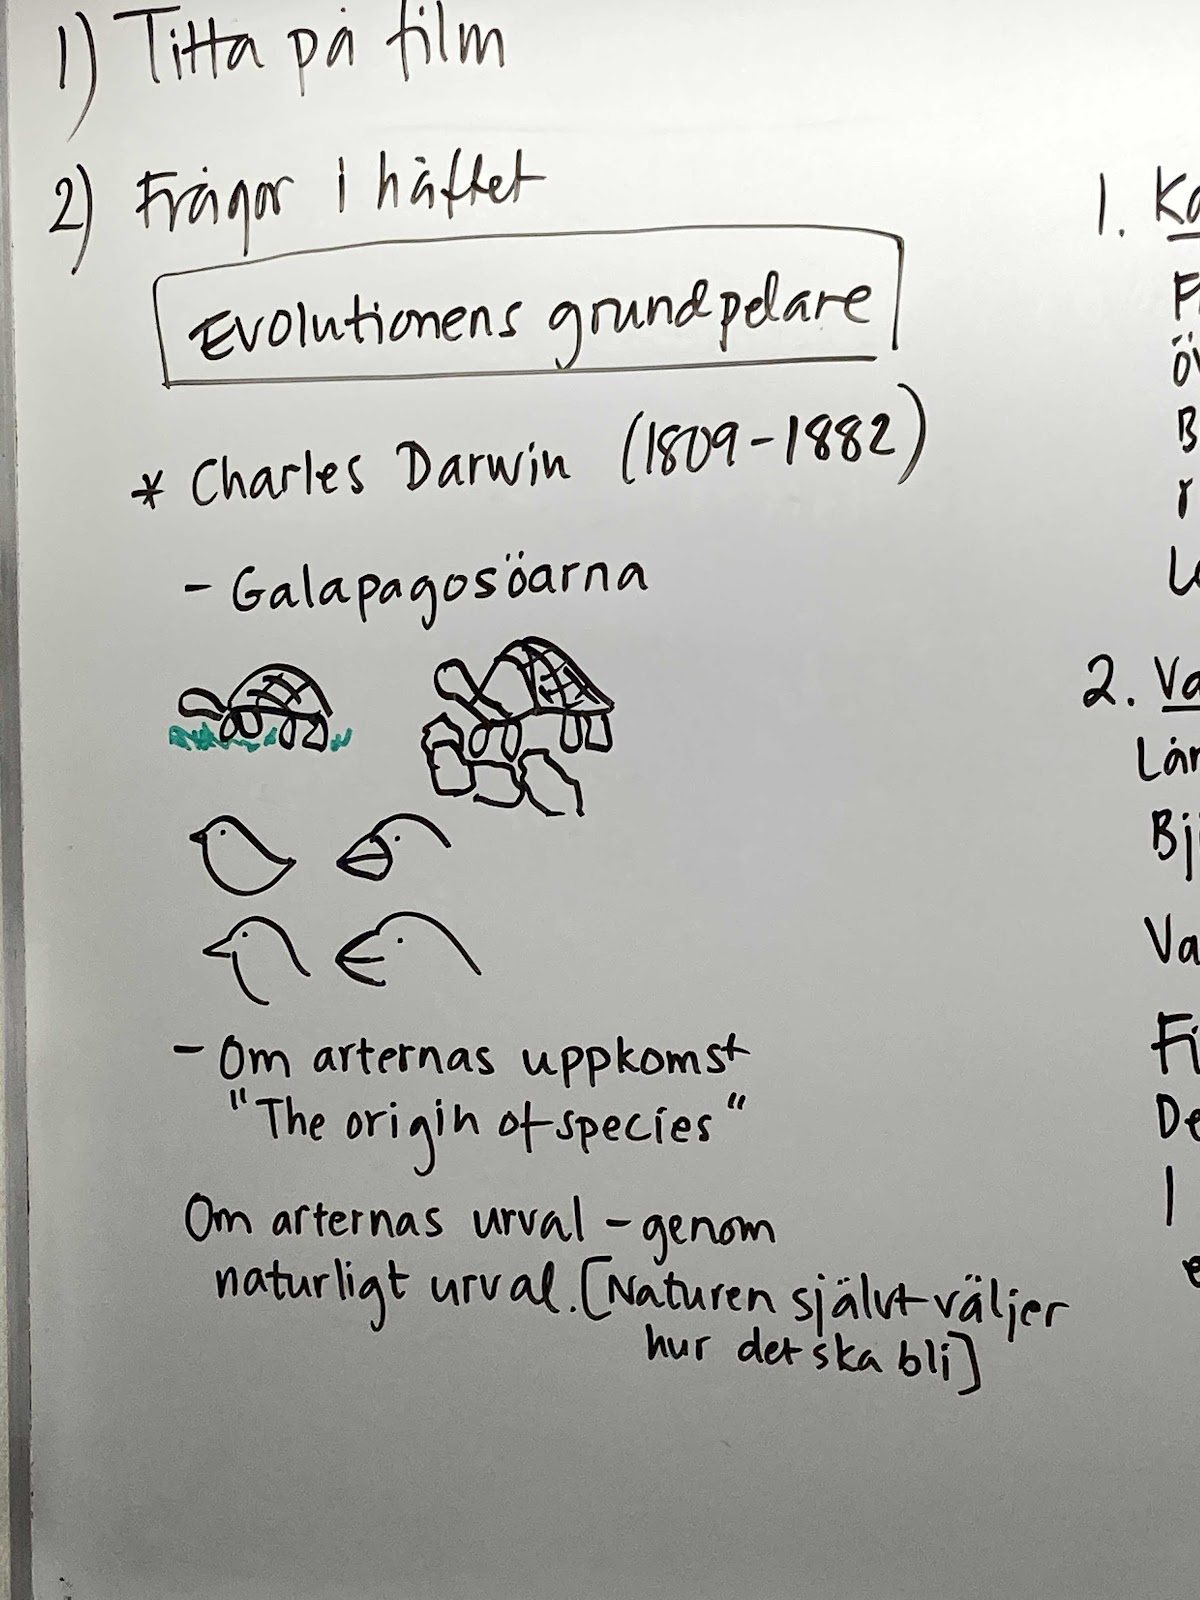 1) Titta på film
2) Frågor i häftet
Evolutionens grundpelare
* Charles Darwin (1809-1882)
- Galapagosöarna
- Om arternas uppkomst
"The origin of species"
Om arternas urval - genom
naturligt urval. [Naturen självt väljer
hur det ska bli]
1.
2.